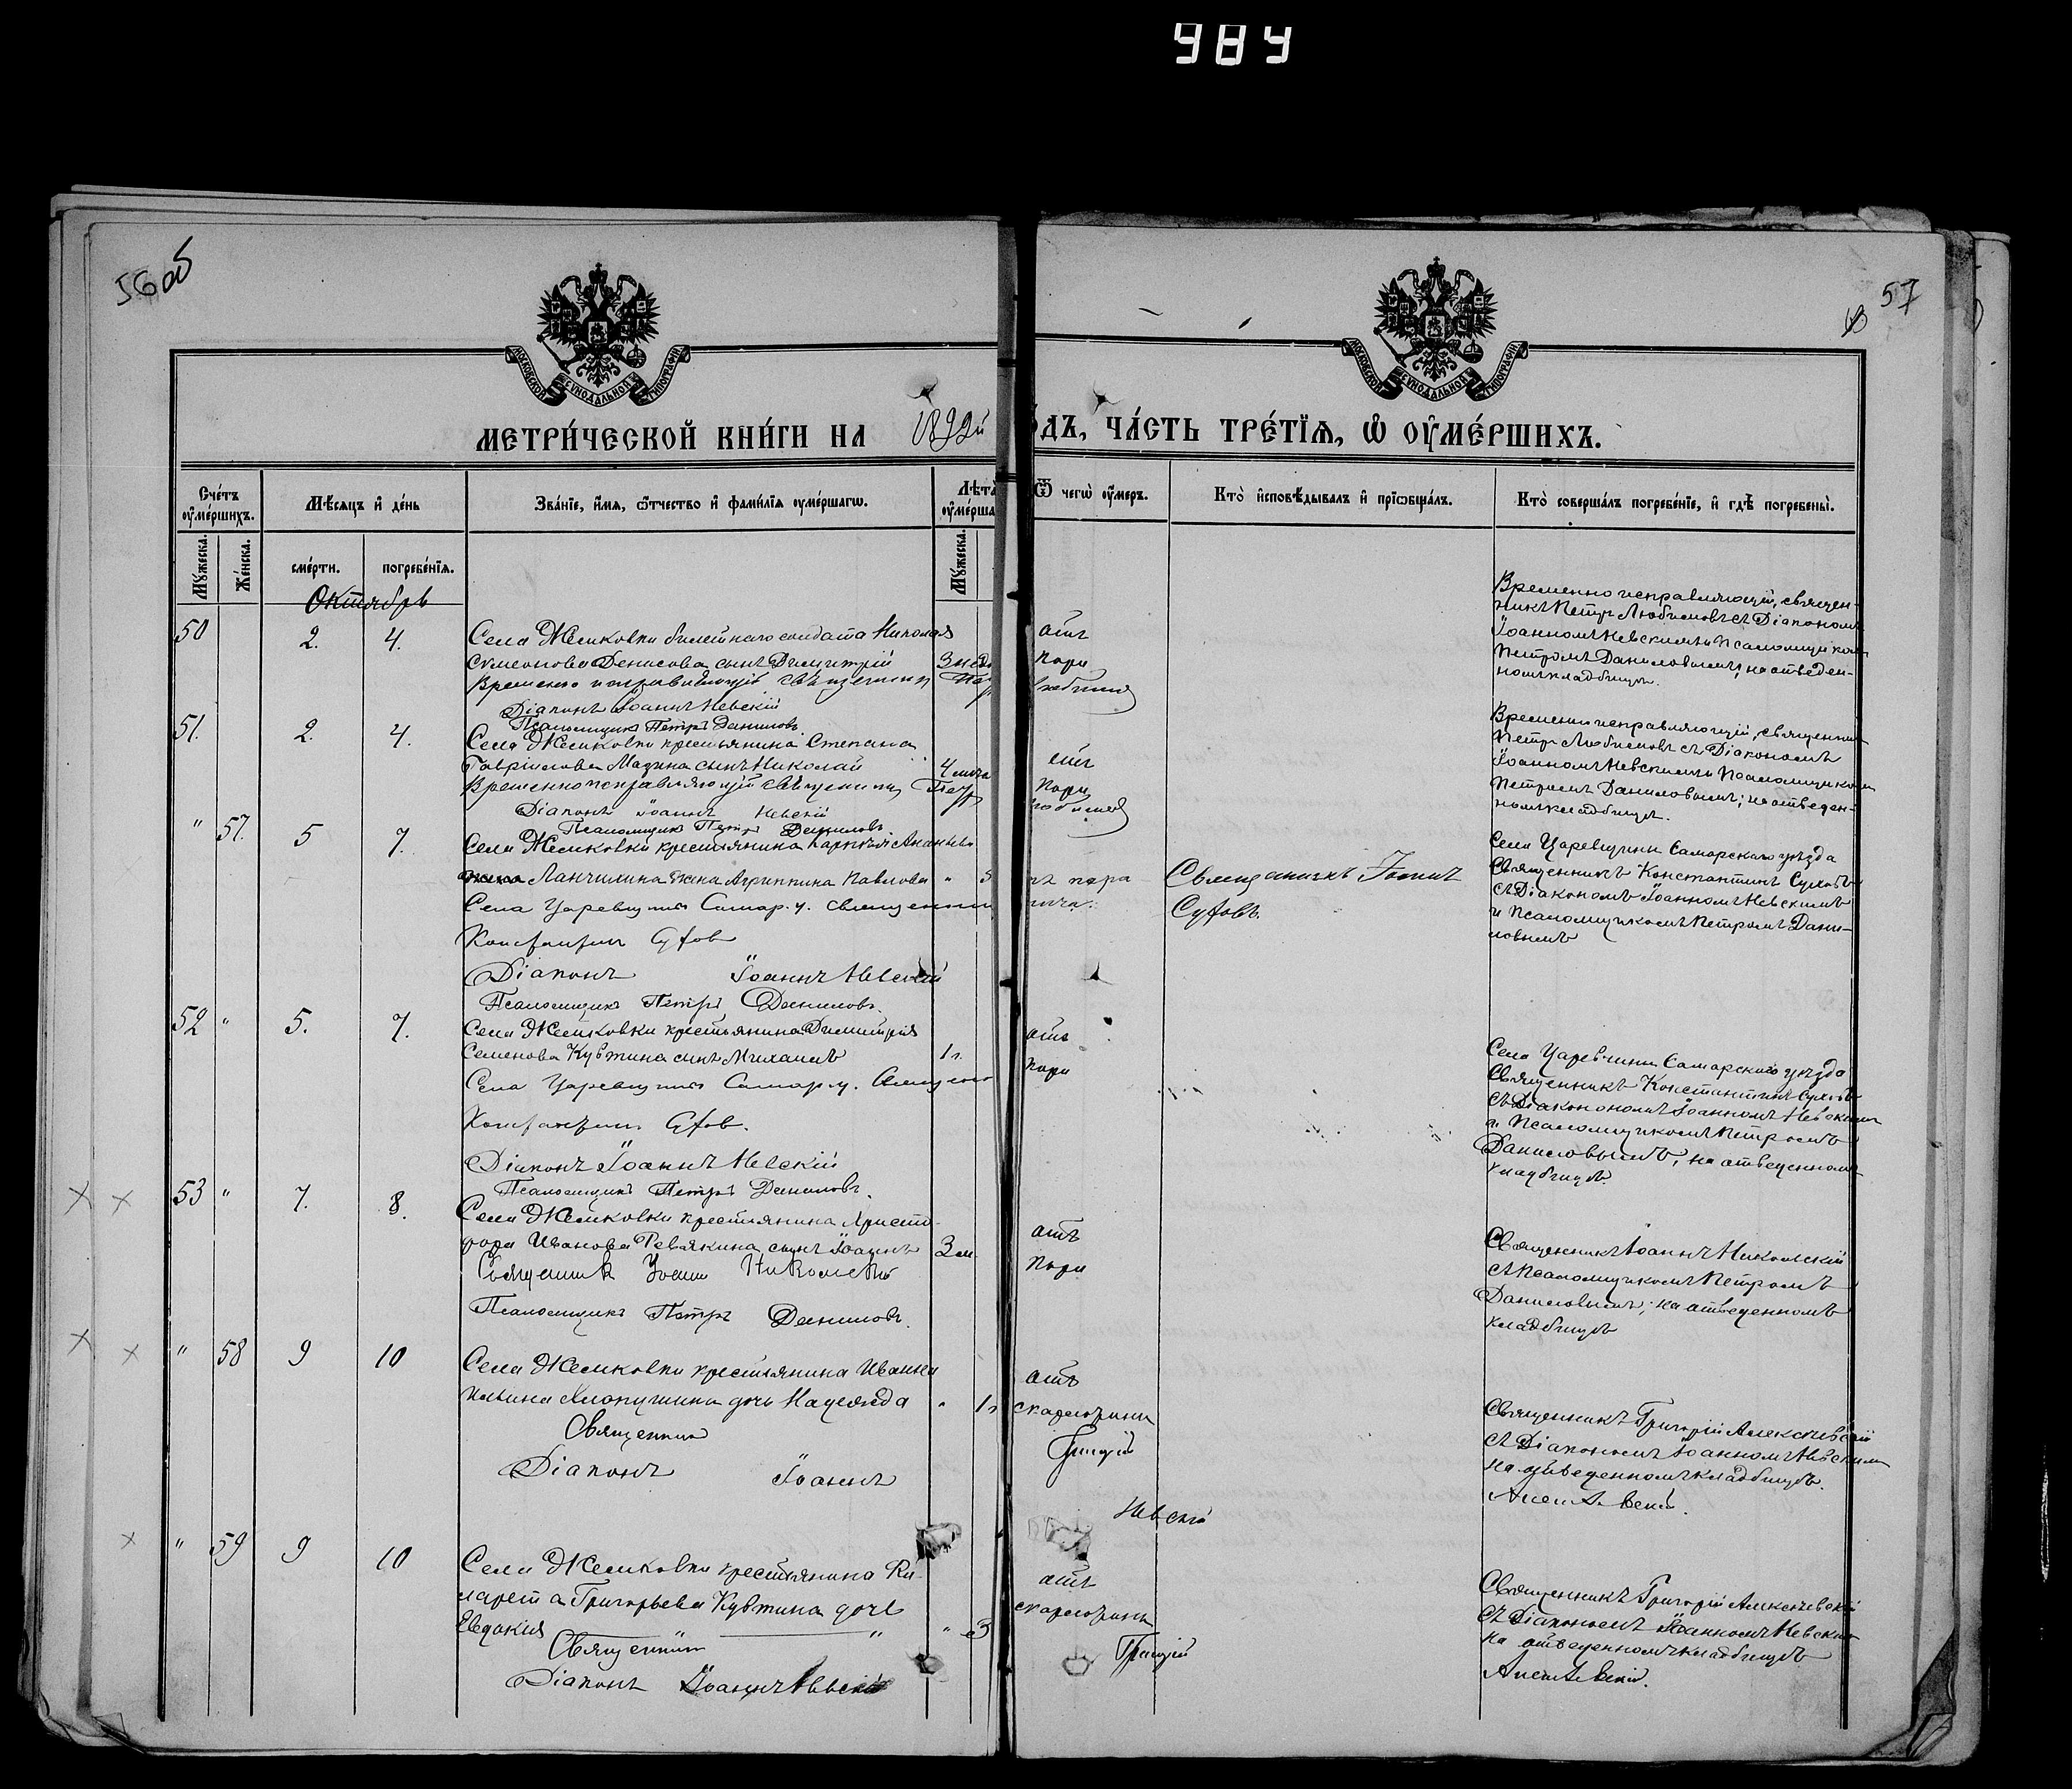 984
56 об
57
МОСКОВСКОЙ СѴНОДАЛЬНОЙ ТИПОГРАФІИ
МОСКОВСКОЙ СѴНОДАЛЬНОЙ ТИПОГРАФІИ
МЕТРИ́ЧЕСКОЙ КНИ́ГИ НА 1892й
ГО́ДЪ, ЧА́СТЬ ТРЕ́ТЇѦ, Ѽ ОУ҆МЕ́РШИХЪ.
Сче́тъ оу҆ме́ршихъ.
Мꙋ́жеска.
Же́нска.
Мѣ́сѧцъ и҆ де́нь
сме́рти.
погребе́нїѧ.
Зва́нїе, и҆́мѧ, ѻ҆́тчество и҆ фами́лїѧ оу҆ме́ршагѡ.
Лѣта
оу҆ме́рша
Мꙋ́жеска.
Ѿ чегѡ̀ оу҆́меръ.
Кто̀ и҆сповѣ́дывалъ и҆ прїѡбща́лъ.
Кто̀ соверша́лъ погребе́нїе, и҆ гдѣ̀ погребены̀.
Октябрь
50
2.
4.
Села Жемковки билетнаго солдата Николая
Симеонова Денисова сынъ Димитрій
3 нед
Діаконъ Іоаннъ Невскій
Псаломщикъ Петръ Даниловъ
отъ
пори
Временно исправляющій, священ-
никъ Петръ Любимовъ съ Діакономъ
Іоанномъ Невскимъ и Псаломщиком
Петромъ Даниловымъ; на отведен-
номъ кладбищѣ.
51.
2.
4.
Села Жемковки крестьянина Степана
Гавріилова Мазина сынъ Николай
4
Временно исправляющій священникъ Петр
Діаконъ Іоаннъ Невскій
Псаломщикъ Петръ Даниловъ
отъ
пори
Временно исправляющій, священник
Петръ Любимовъ съ Діакономъ
Іоанномъ Невскимъ и Псаломщиком
Петромъ Даниловымъ; на отведен-
номъ кладбищѣ.
"
57.
5
7.
Села Жемковки крестьянина
жена Агриппина Павлова "
Села Царевщины Самар. у. священник
Константин Сухов
Діаконъ Іоаннъ Невскій
Псаломщикъ Петръ Даниловъ.
Священникъ Іоаннъ
Суховъ.
Села Царевщины Самарскаго уѣзда
Священникъ Константинъ Суховъ
съ Діакономъ Іоанномъ Невскимъ
и Псаломщикомъ Петромъ Дани-
ловымъ
52
"
5.
7.
Села Жемковки крестьянина Димитрія
Семенова Кувтина сынъ Михаилъ
1 г.
Села Царевщины Самар. у. Священ
Константин Сухов.
Діаконъ Іоаннъ Невскій
Псаломщикъ Петръ Даниловъ.
отъ
пори
Села Царевщины Самарскаго уѣзда
Священникъ Константинъ Суховъ
съ Діаконономъ Іоанномъ Невским
и Псаломщикомъ Петромъ
Даниловымъ, на отведенномъ
кладбищѣ.
53
"
7.
8.
Села Жемковки крестьянина Христо-
фора Иванова Ревякина сынъ Іоаннъ
3 м.
Священник Іоанн Никольскій
Псаломщикъ Петръ Даниловъ.
отъ
пори
Священникъ Іоаннъ Никольскій
съ Псаломщикомъ Петромъ
Даниловымъ; на отведенномъ
кладбищѣ
"
58
9
10
Села Жемковки крестьянина Ивана
дочь Надежда
"
1 г
Священник
Діаконъ Іоаннъ
отъ
скарлатины
Григорій
Невскій
Священникъ Григорій Алексѣевскій
съ Діакономъ Іоанномъ Невским
на отведенномъ кладбищѣ.
Алексѣевскій.
"
59
9
10
Села Жемковки крестьянина Фи-
ларета Григорьева Кувтина дочь
Евдокия
"
3
Священник
Діаконъ Іоаннъ Невскій
отъ
скарлатины
Григорій
Священникъ Григорій Алексѣевскій
съ Діакономъ Іоанномъ Невским
на отведенномъ кладбищѣ
Алексѣевскій.